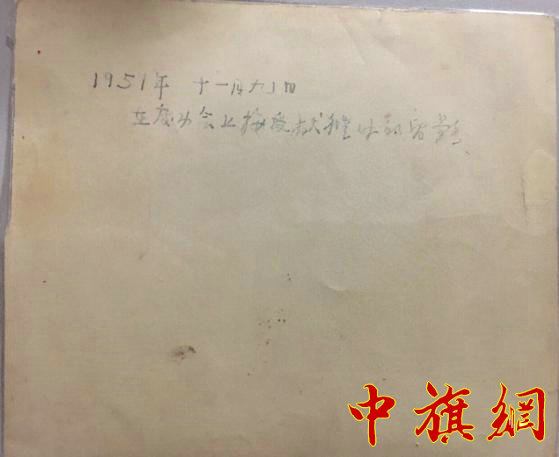 1951年 十一月九日
在庆功会上接受献礼时的留影
中旗網